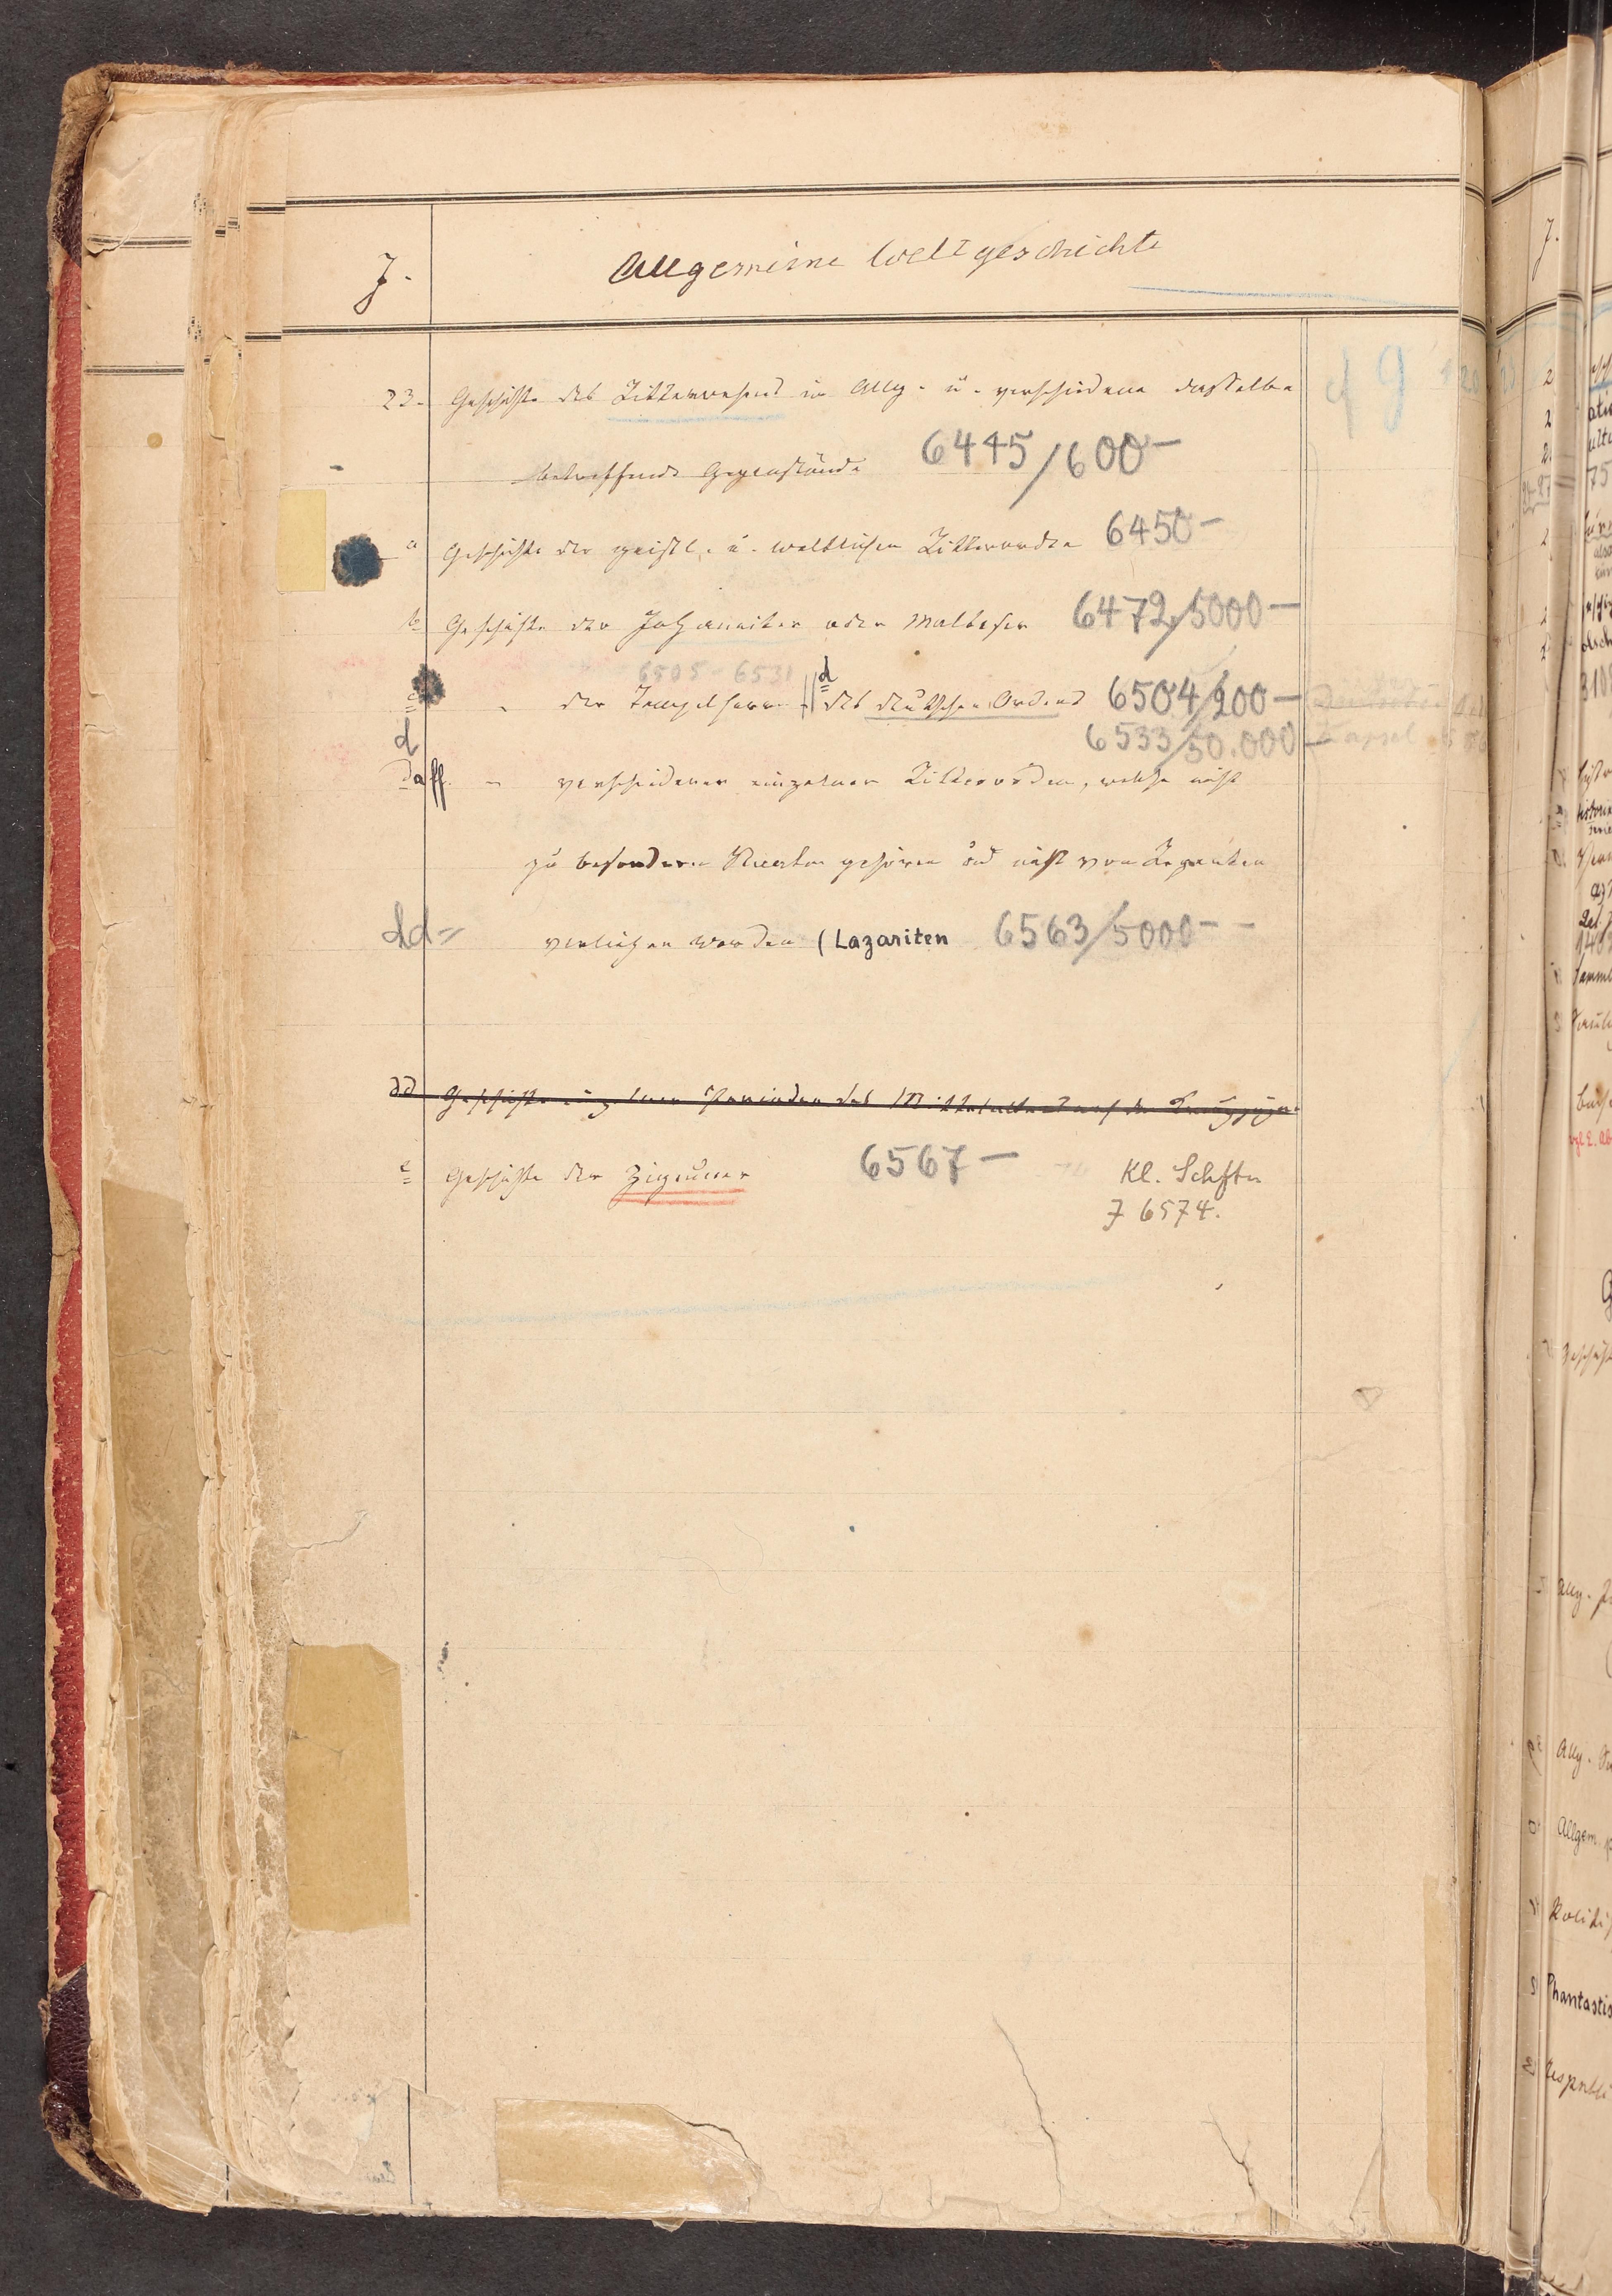 J.
Allgemeine Weltgeschichte
23. Geschichte des Ritterwesens im Allg. u. verschiedene dasselbe
betreffende Gegenstände 6445/600-
a Geschichte der geistl. u. weltlichen Ritterorden 6450-
b Geschichte der Johanniter oder Malteser 6472/5000-
6505-6531
c " der Tempelherren || d des deutschen Ordens 6504/200-
d 6533/50.000-
da ff. " verschiedener einzelner Ritterorden, welche nicht
zu besondern Staaten gehören und nicht von Regenten
dd= verliehen werden (Lazariten 6563/5000-
dd Geschichte einzelner Perioden des Mittelalters auf der Kreuzzüge
e Geschichte der Zigeuner 6567- Kl. Schften
J 6574.